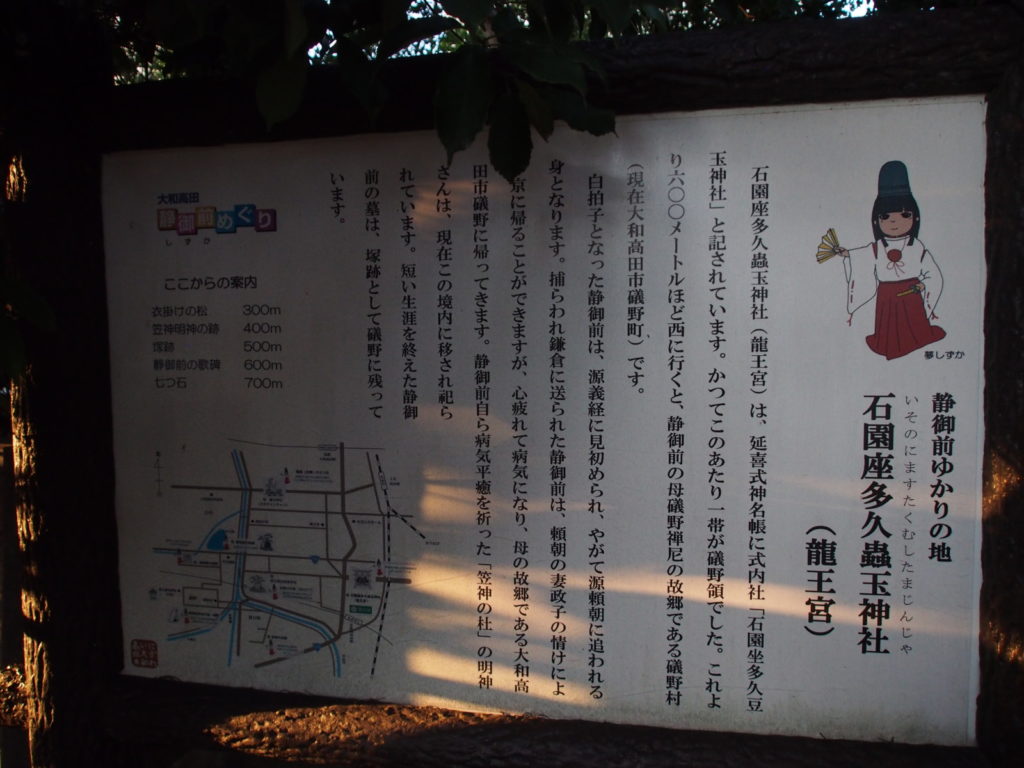 夢しずか
静御前ゆかりの地
いそのにますたくむしたまじんじゃ
石園座多久蟲玉神社
（龍王宮）
石園座多久蟲玉神社（龍王宮）は、延喜式神名帳に式内社「石園坐多久豆
玉神社」と記されています。かつてこのあたり一帯が磯野領でした。これよ
り六〇〇メートルほど西に行くと、静御前の母磯野禅尼の故郷である磯野村
（現在大和高田市磯野町）です。
白拍子となった静御前は、源義経に見初められ、やがて源頼朝に追われる
身となります。捕らわれ鎌倉に送られた静御前は、頼朝の妻政子の情けによ
京に帰ることができますが、心疲れて病気になり、母の故郷である大和高
田市磯野に帰ってきます。静御前自ら病気平癒を祈った「笠神の杜」の明神
さんは、現在この境内に移され祀ら
れています。短い生涯を終えた静御
前の墓は、塚跡として磯野に残って
います。
大和高田
静御前めぐり
しずか
ここからの案内
衣掛けの松 300m
笠神明神の跡 400m
塚跡 500m
静御前の歌碑 600m
七つ石 700m